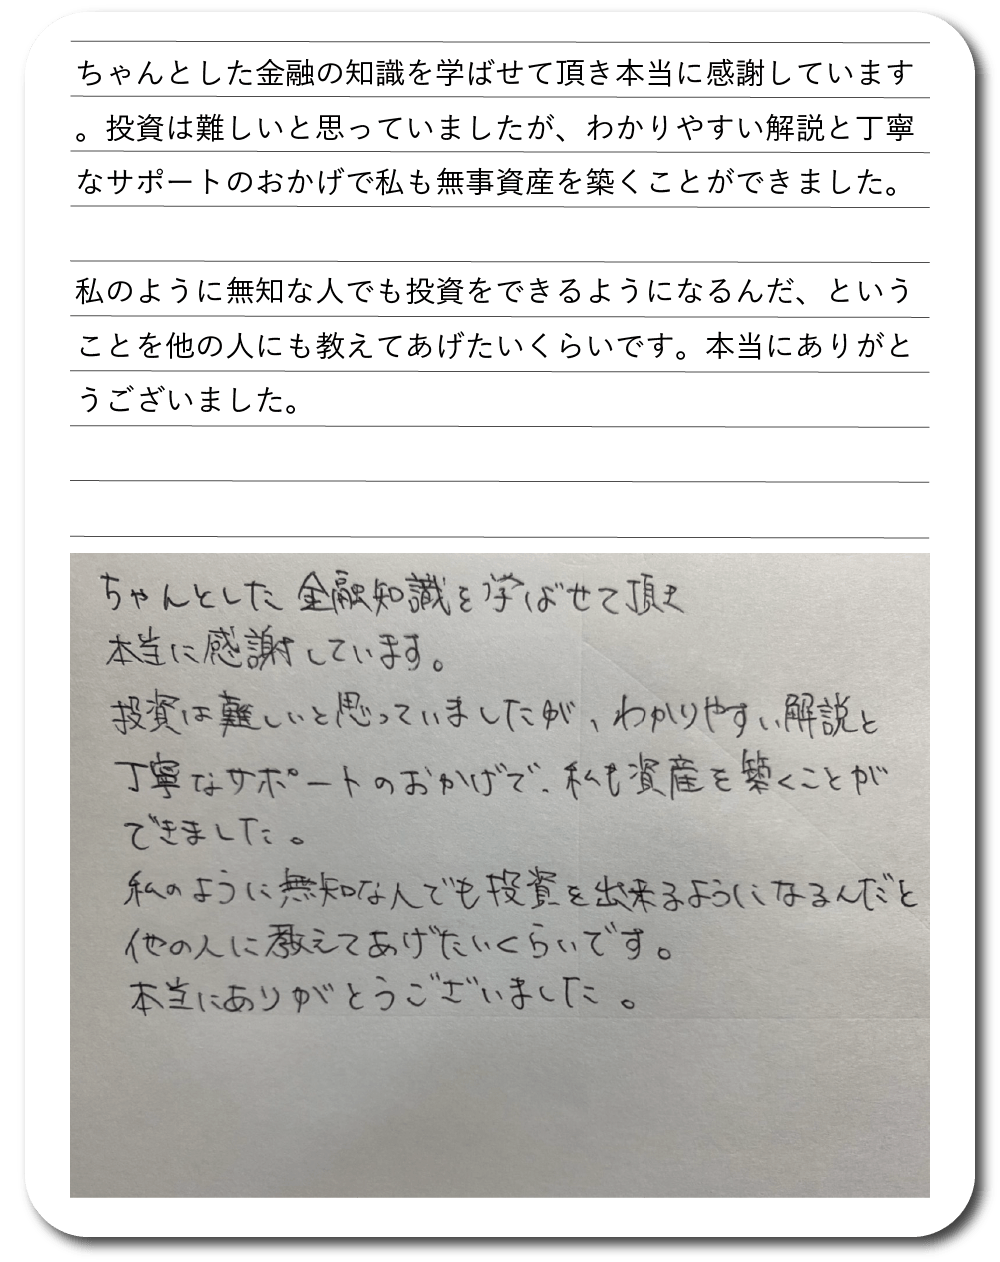 ちゃんとした金融の知識を学ばせて頂き本当に感謝しています
。投資は難しいと思っていましたが、わかりやすい解説と丁寧
なサポートのおかげで私も無事資産を築くことができました。
私のように無知な人でも投資をできるようになるんだ、という
ことを他の人にも教えてあげたいくらいです。本当にありがと
うございました。
ちゃんとした金融知識を学ばせて頂き
本当に感謝しています。
投資は難しいと思っていましたが、わかりやすい解説と
丁寧なサポートのおかげで、私も資産を築くことが
できました。
私のように無知な人でも投資を出来るようになるんだと
他の人に教えてあげたいくらいです。
本当にありがとうございました。